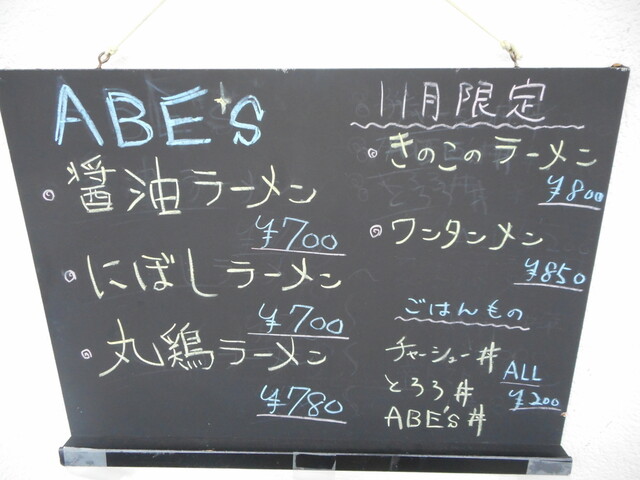 ABE's
醤油ラーメン
¥700
にぼしラーメン
¥700
丸鶏ラーメン
¥780
11月限定
きのこのラーメン
¥800
ワンタンメン
¥850
ごはんもの
チャーシュー丼
とろろ丼
ABE's丼
ALL
¥200